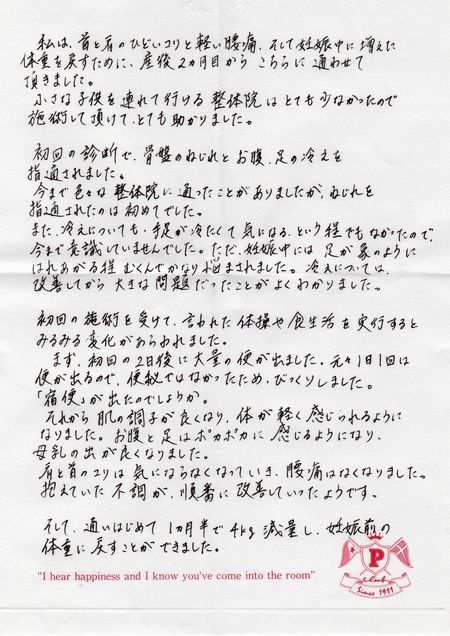 私は、首と肩のひどいコリと軽い腰痛、そして妊娠中に増えた
体重を戻すために、産後2ヵ月目からこちらに通わせて
頂きました。
小さな子供を連れて行ける整体院はとても少なかったので
施術して頂けて、とても助かりました。
初回の診断で、骨盤のねじれとお腹、足の冷えを
指適されました。
今まで色々な整体院に通ったことがありましたが、ねじれを
指適されたのは初めてでした。
また、冷えについても、手足が冷たくて気になる、という程でもなかったので、
今まで意識していませんでした。ただ、妊娠中には足が象のように
はれあがる程むくんでかなり悩まされました。冷えについては、
改善してから大きな問題だったことがよくわかりました。
初回の施術を受けて、言われた体操や食生活を実行すると
みるみる変化があらわれました。
まず、初回の2日後に大量の便が出ました。元々1日1回は
便が出るので、便秘ではなかったため、びっくりしました。
「宿便」が出たのでしょうか。
それから肌の調子が良くなり、体が軽く感じられるように
なりました。お腹と足はポカポカに感じるようになり、
母乳の出が良くなりました。
肩と首のコリは気にならなくなっていき、腰痛はなくなりました。
抱えていた不調が、順番に改善していったようです。
そして、通いはじめて1ヵ月半で4kg減量し、妊娠前の
体重に戻すことができました。
"I hear happiness and I know you've come into the room"
P
club
Since 1911